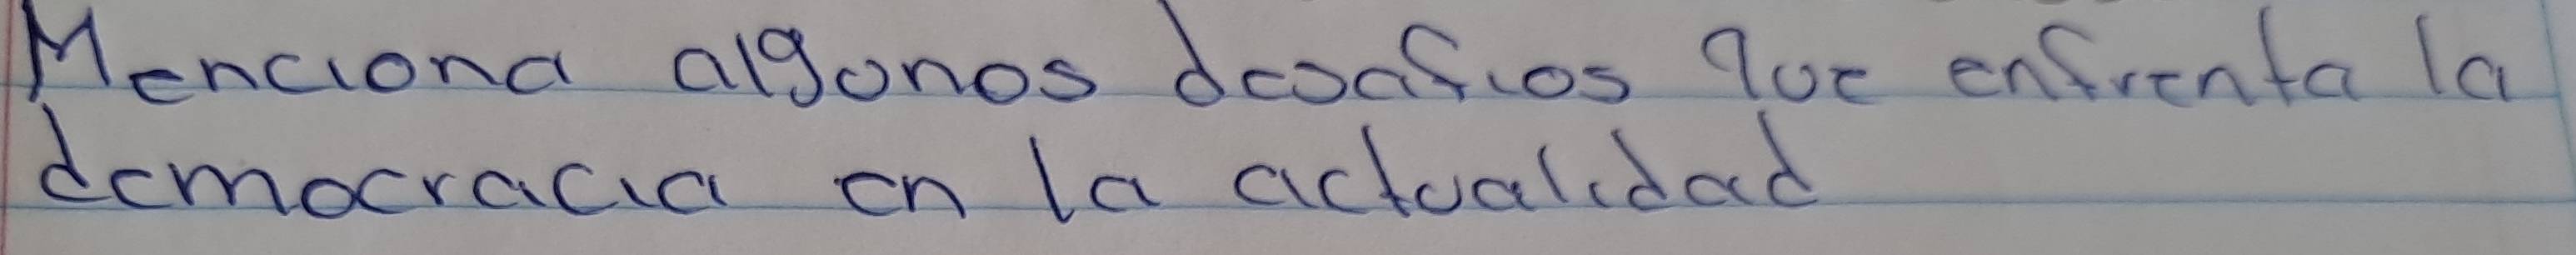 Menciona algunos desafios que enfrenta la
democracia en la actualidad